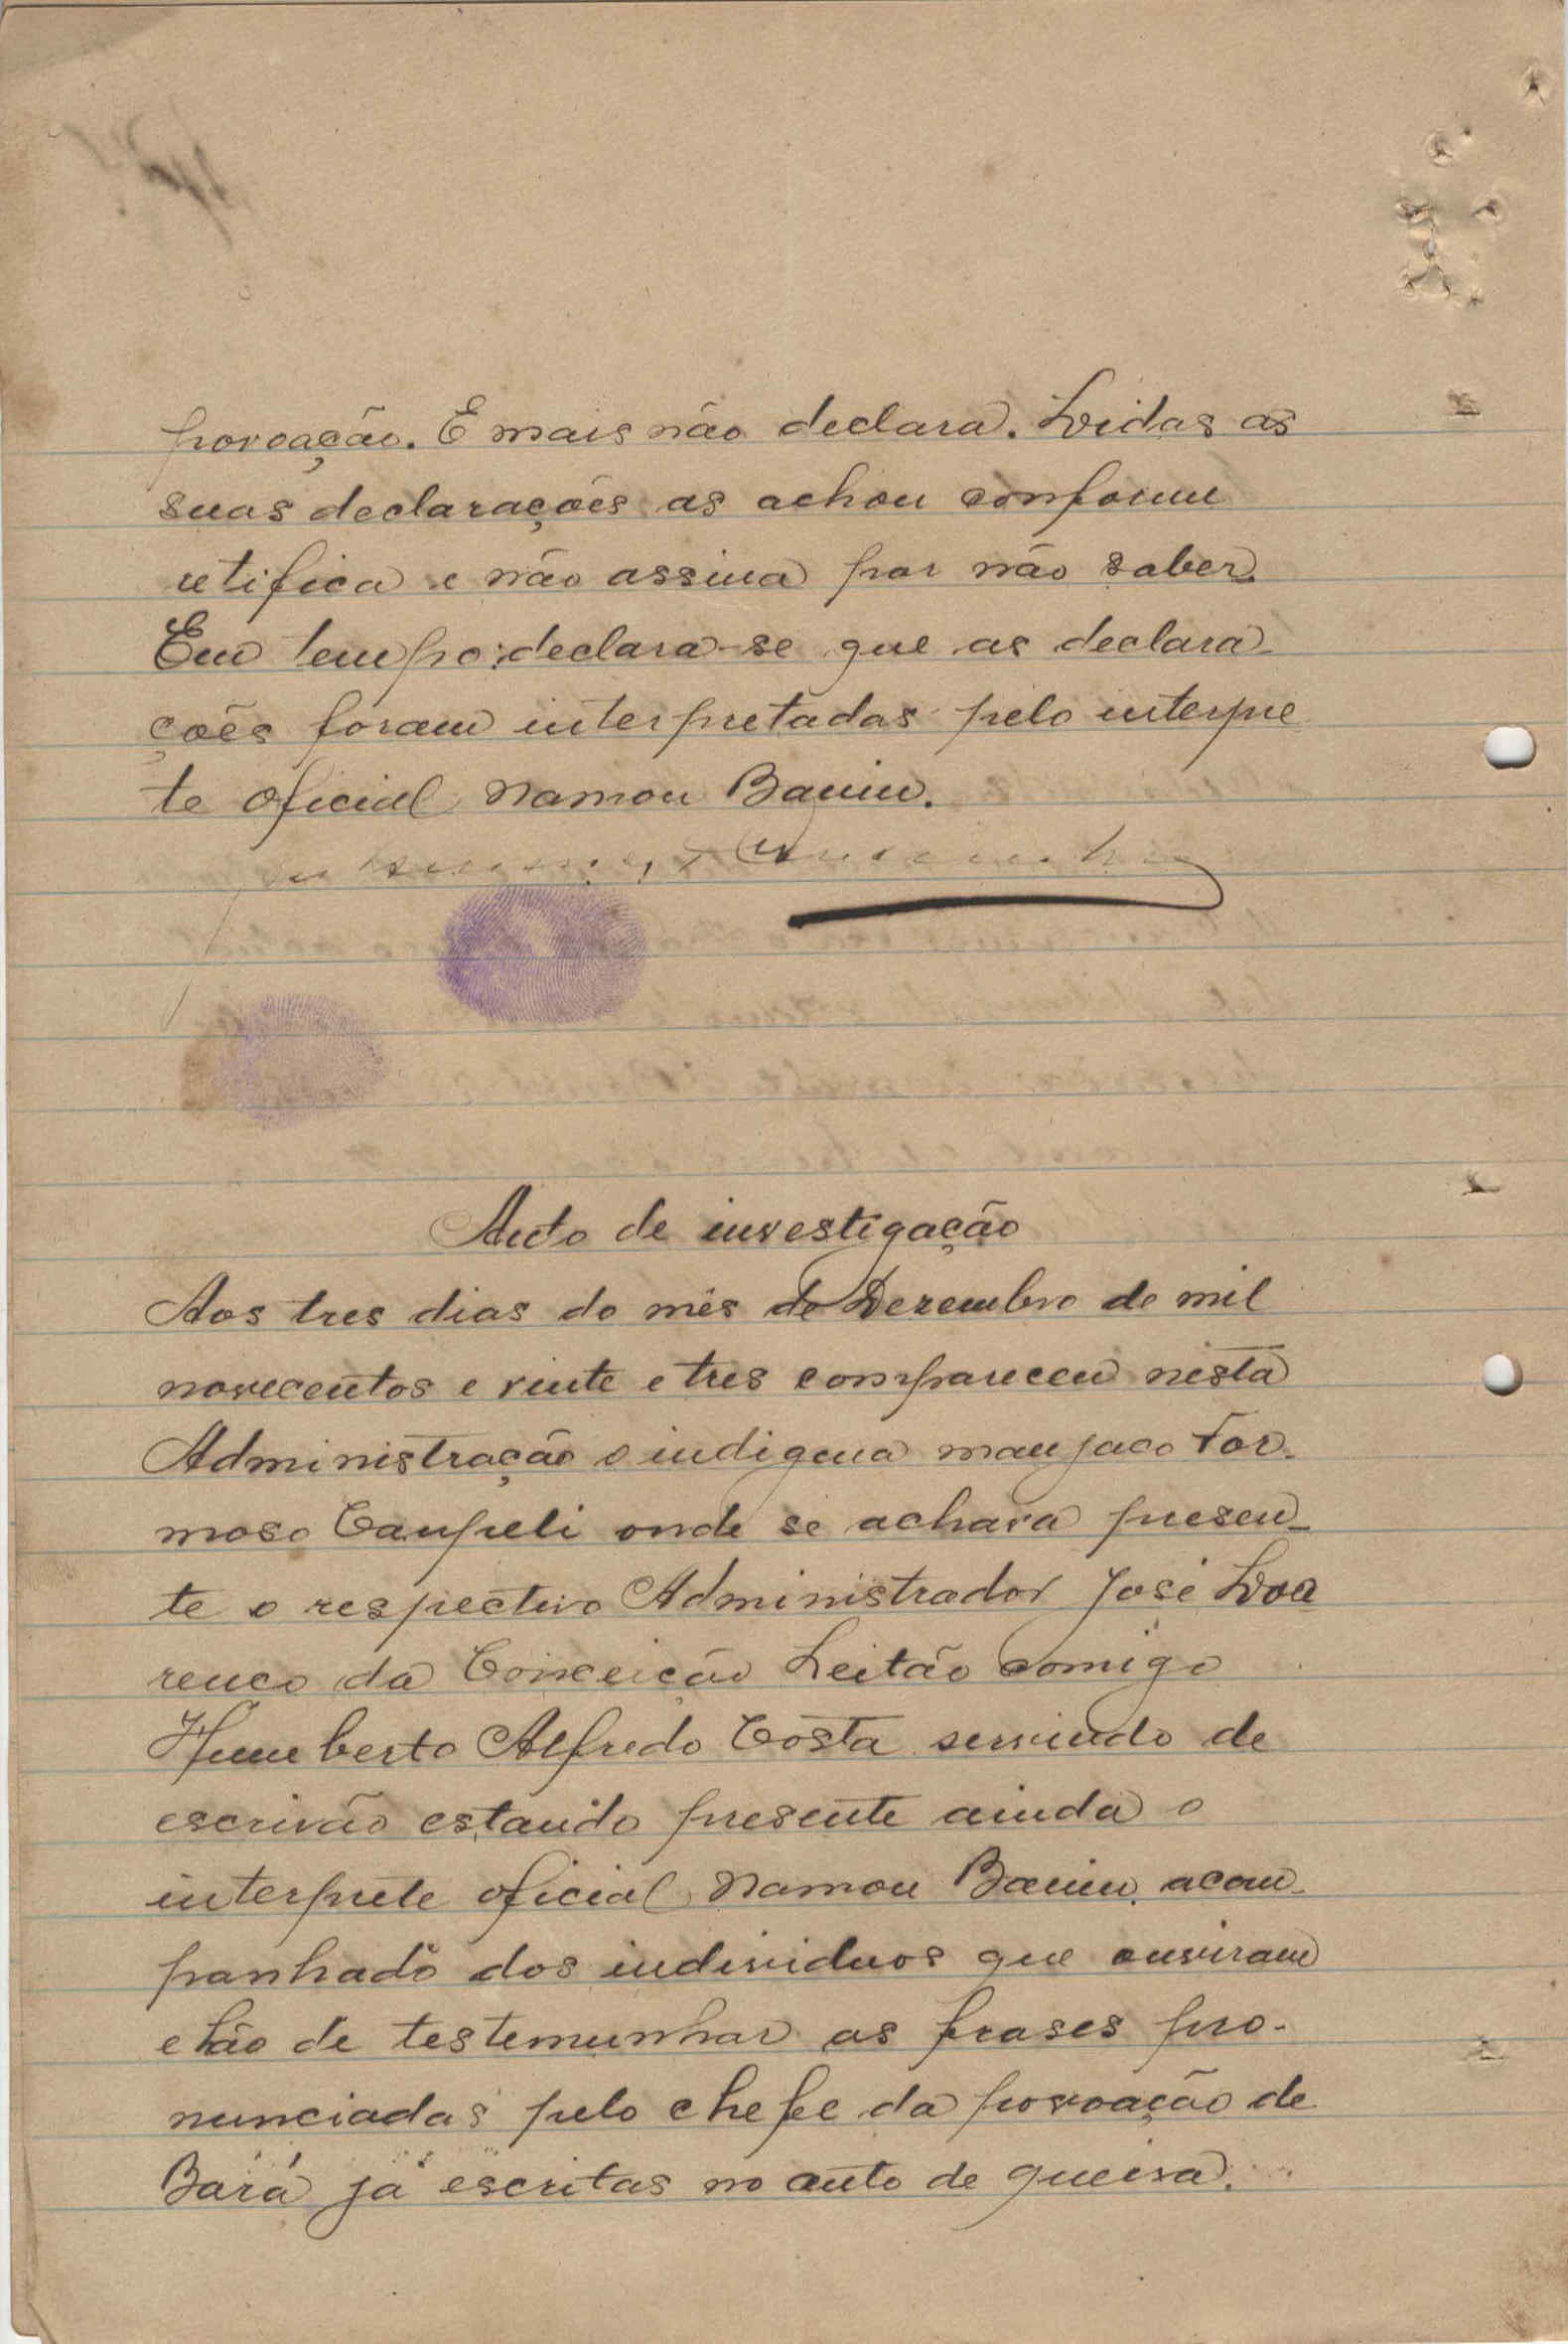 povoação. E mais não declara. Lidas as
suas declarações as achou conforme
retifica e não assina por não saber.
Em tempo: declara-se que as declara-
ções foram interpretadas pelo interpre
te oficial Mamou Banin.
Auto de investigação
Aos tres dias do mês de Dezembro de mil
novecentos e vinte e tres compareceu nesta
Administração o indigena manjaco For-
moso Campeli onde se achava presen-
te o respectivo Administrador José Lou
renco da Conceição Leitão comigo
Humberto Alfredo Costa servindo de
escrivão estando presente ainda o
interprete oficial Mamou Banin, acom-
panhado dos individuos que ouviram
e hão de testemunhar as frases pro-
nunciadas pelo chefe da povoação de
Bará já escritas no auto de queixa.